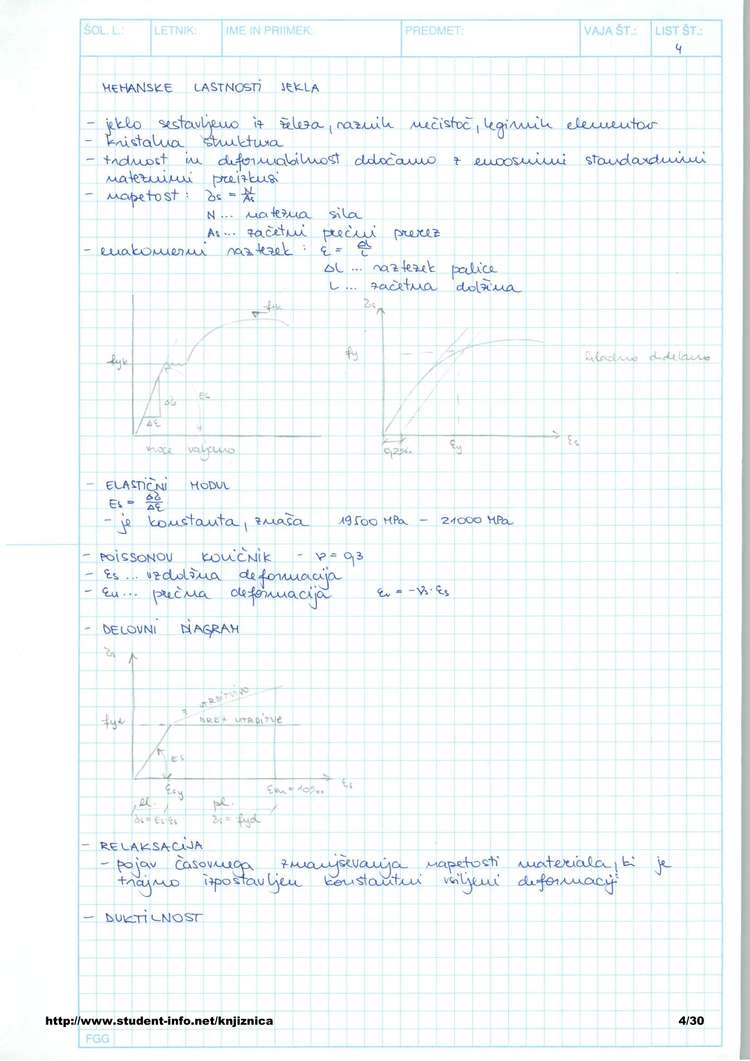 ŠOL. L.: LETNIK: IME IN PRIIMEK: PREDMET: VAJA ŠT.: LIST ŠT.:
4
MEHANSKE LASTNOSTI JEKLA
- jeklo sestavljeno iz železa, raznih nečistoč, legirnih elementov
- kristalna struktura
- trdnost in deformabilnost določamo z enoosnimi standardnimi
nateznimi preizkusi
- napetost : σs = N/As
N ... natezna sila
As ... začetni prečni prerez
- enakomerni raztezek : ε = ΔL/L
ΔL ... raztezek palice
L ... začetna dolžina
ftk
fyk
Δσ
Δε
Es
vroče valjano
σs
fy
0,2%
εy
εs
hladno obdelano
- ELASTIČNI MODUL
Es = Δσ/Δε
- je konstanta, znaša 19500 MPa - 21000 MPa
- POISSONOV KOLIČNIK - ν = 0,3
- εs ... vzdolžna deformacija
- εu ... prečna deformacija εu = -νs · εs
- DELOVNI DIAGRAM
σs
Z UTRDITVIJO
BREZ UTRDITVE
fyd
Es
εsy
εsu = 10‰
εs
el. pl.
σs = Es·εs σs = fyd
- RELAKSACIJA
- pojav časovnega zmanjševanja napetosti materiala, ki je
trajno izpostavljen konstantni vsiljeni deformaciji
- DUKTILNOST
http://www.student-info.net/knjiznica 4/30
FGG